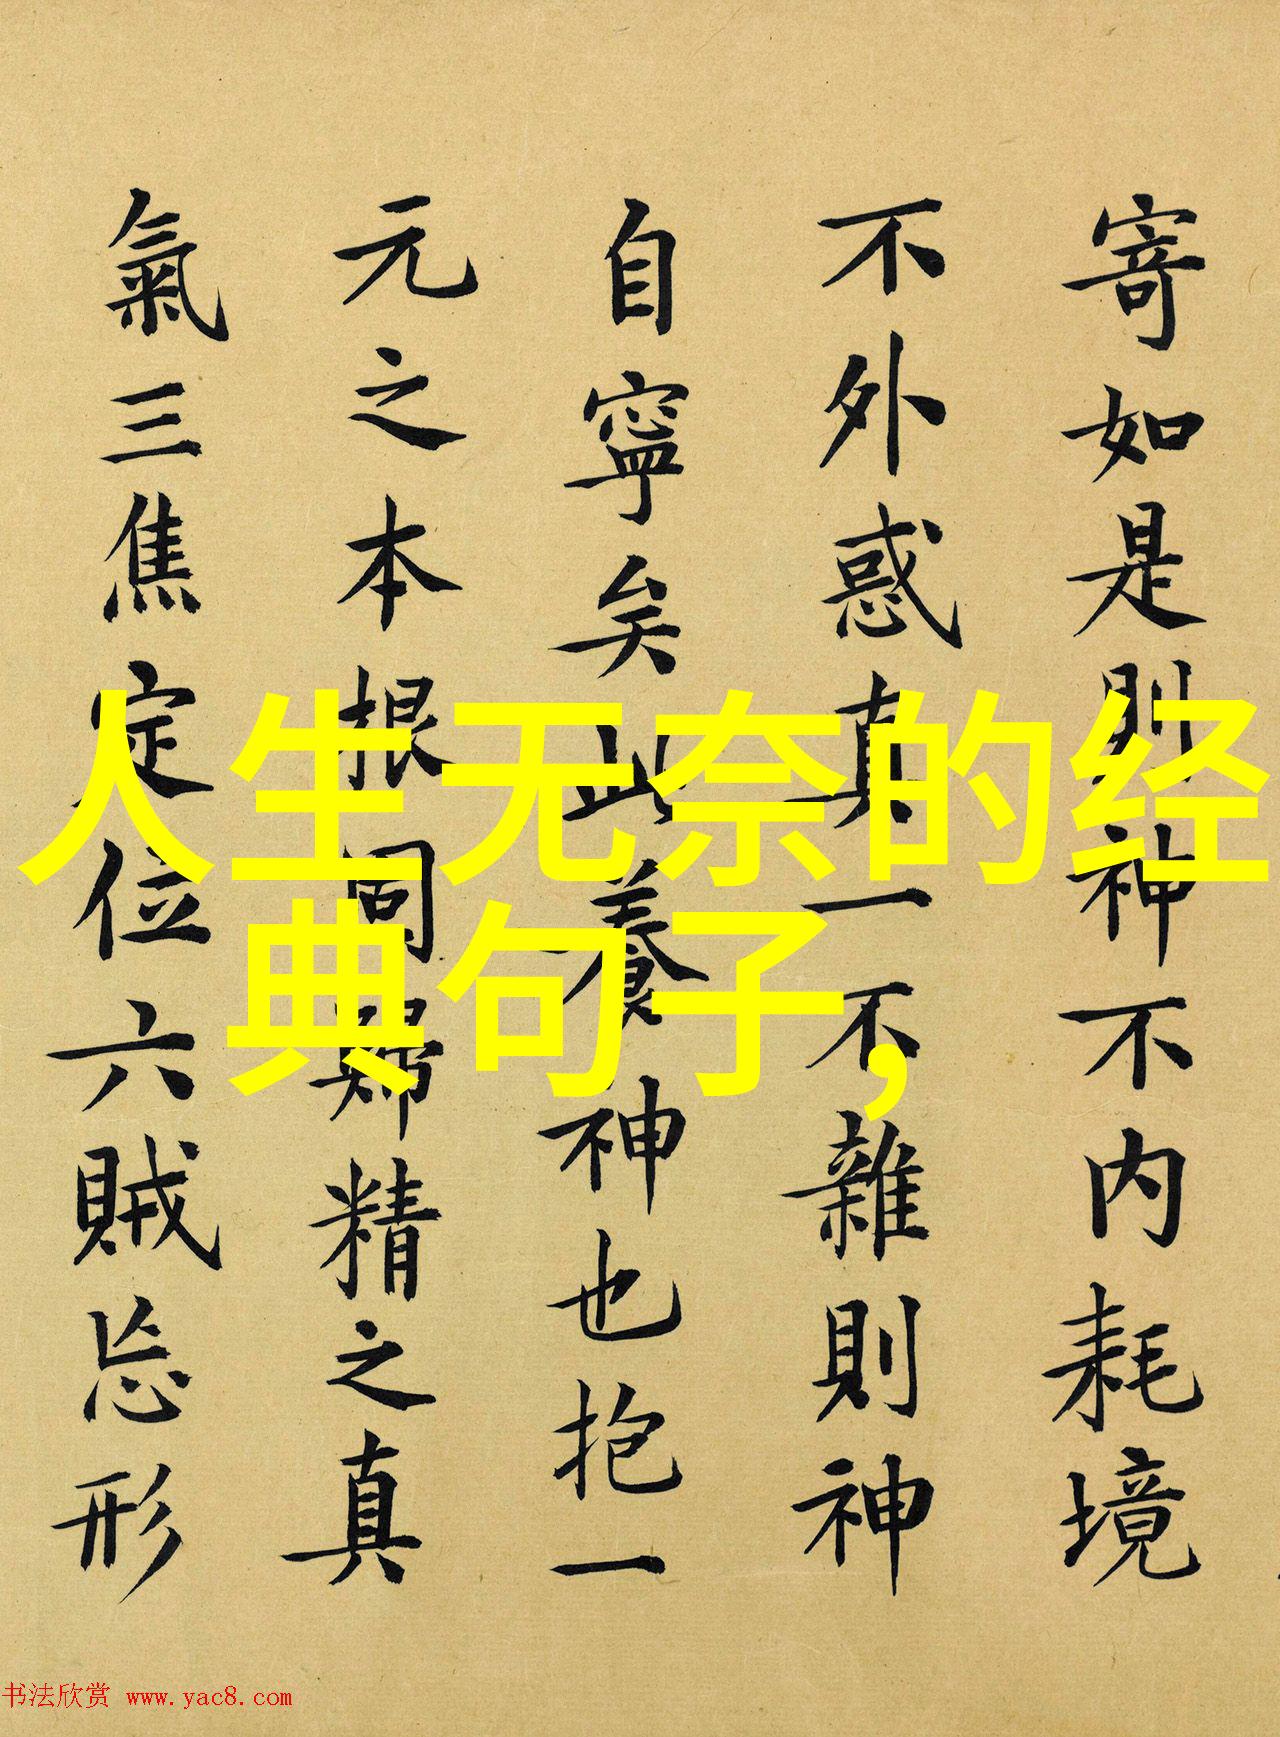 寄如是則神不内耗境
不外惑真一不雜則神
自寧矣此養神也抱一
元之本根固歸精之真
氣三焦定位六賊忘形
人生无奈的经
典句子,
书法欣赏 www.yac8.com